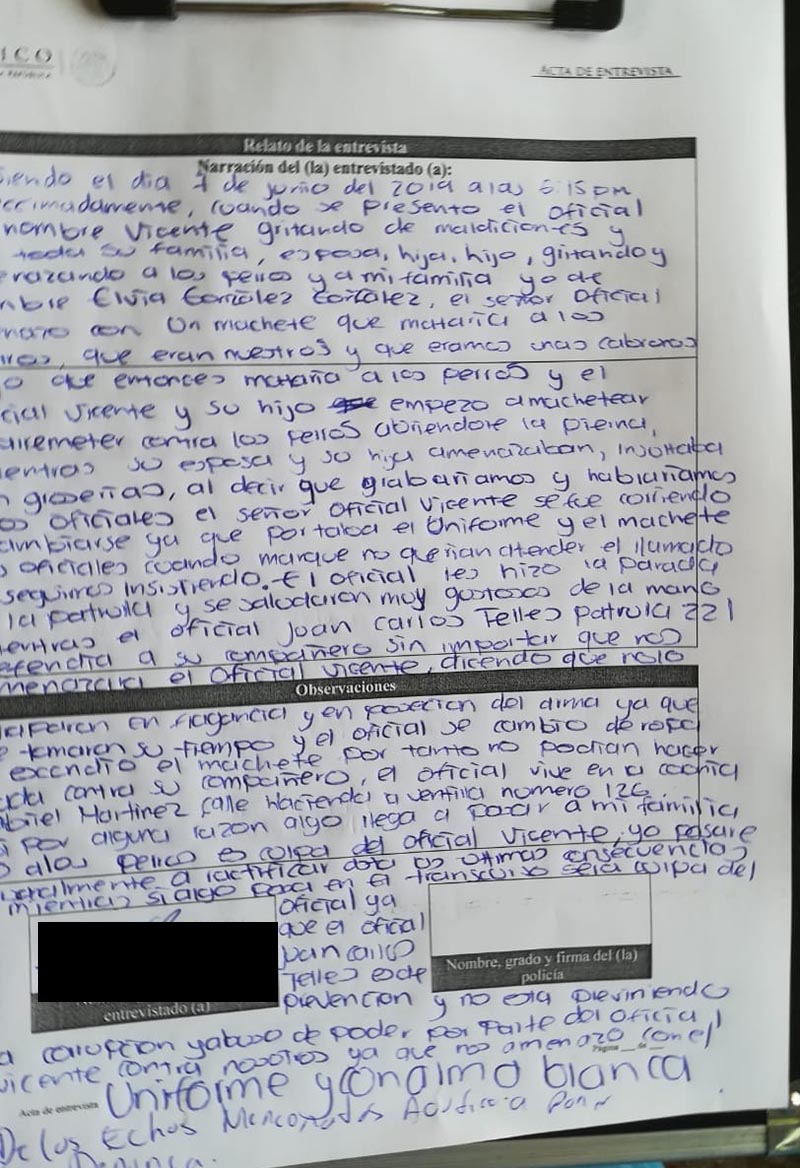 ICO
ACTA DE ENTREVISTA
Relato de la entrevista
Narración del (la) entrevistado (a):
iendo el dia 7 de junio del 2019 a las 6:15 pm
cimadamente, cuando se presento el oficial
nombre Vicente gritando de maldiciones y
toda su familia, esposa, hija, hijo, gritando y
razando a los perros y a mi familia yo de
mbre Elvia González González, el señor oficial
nazo con Un machete que mataria a los
rros, que eran nuestros y que eramos unas cabronas
o que entonces mataria a los perros y el
cial Vicente y su hijo empezo a machetear
arremeter contra los perros abriendole la pierna,
entras su esposa y su hija amenazaban, insultaba
n groserias, al decir que grabariamos y hablariamos
os oficiales el señor oficial Vicente se fue corriendo
ambiarse ya que portaba el Uniforme y el machete
s oficiales cuando marque no querian atender el llamado
seguimos insistiendo. El oficial les hizo la parada
la patrulla y se saludaron muy gustosos de la mano
entras el oficial Juan Carlos Telles patrulla 221
efendia a su compañero sin importar que nos
menazara el oficial Vicente, dicendo que nolo
Observaciones
en flagancia y en posecion del arma ya que
tomaron su tiempo y el oficial se cambio de ropa
excondio el machete por tanto no podian hacer
ada contra su compañero, el oficial vive en la colonia
abiel Martinez calle Hacienda aventilla numero 126.
i por alguna razon algo llega a pasar a mi familia
o alos perros es culpa del oficial Vicente, yo pasare
a ractificar las ultimas consecuencias
mientras si algo pasa en el transcurso sera culpa del
oficial ya
que el oficial
Juan Carlos
Telles es de
prevencion y no esta previniendo
entrevistado (a)
Nombre, grado y firma del (la)
policía
a corrupcion y abuso de poder por parte del oficial
vicente contra nosotros ya que nos amenazo con el
Página
Acta de entrevista
Uniforme y con alma blanca
De los Echos Mencionados